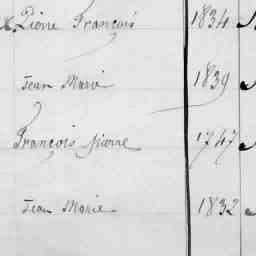 Pierre François 1834
Jean Marie 1839
François Pierre 1747
Jean Marie 1832